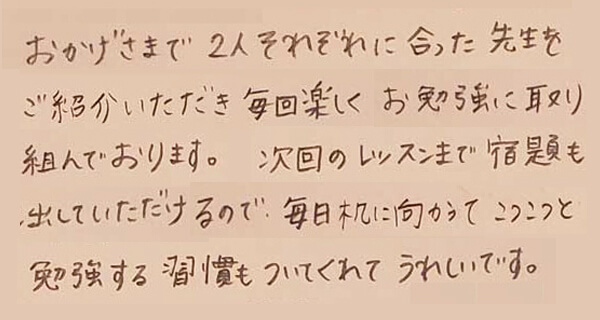 おかげさまで 2人それぞれに 合った 先生を
ご紹介いただき 毎回楽しく お勉強に取り
組んでおります。 次回のレッスンまで 宿題も
出していただけるので、毎日机に向かって こつこつと
勉強する 習慣も ついてくれて うれしいです。